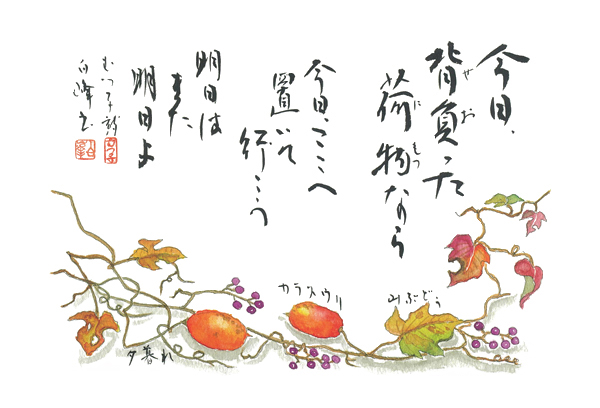 今日、
背負った
せお
荷物なら
にもつ
今日、ここへ
置いて
行こう
明日は
また
明日よ
むつ子詩
白峰書
カラスウリ
山ぶどう
夕暮れ